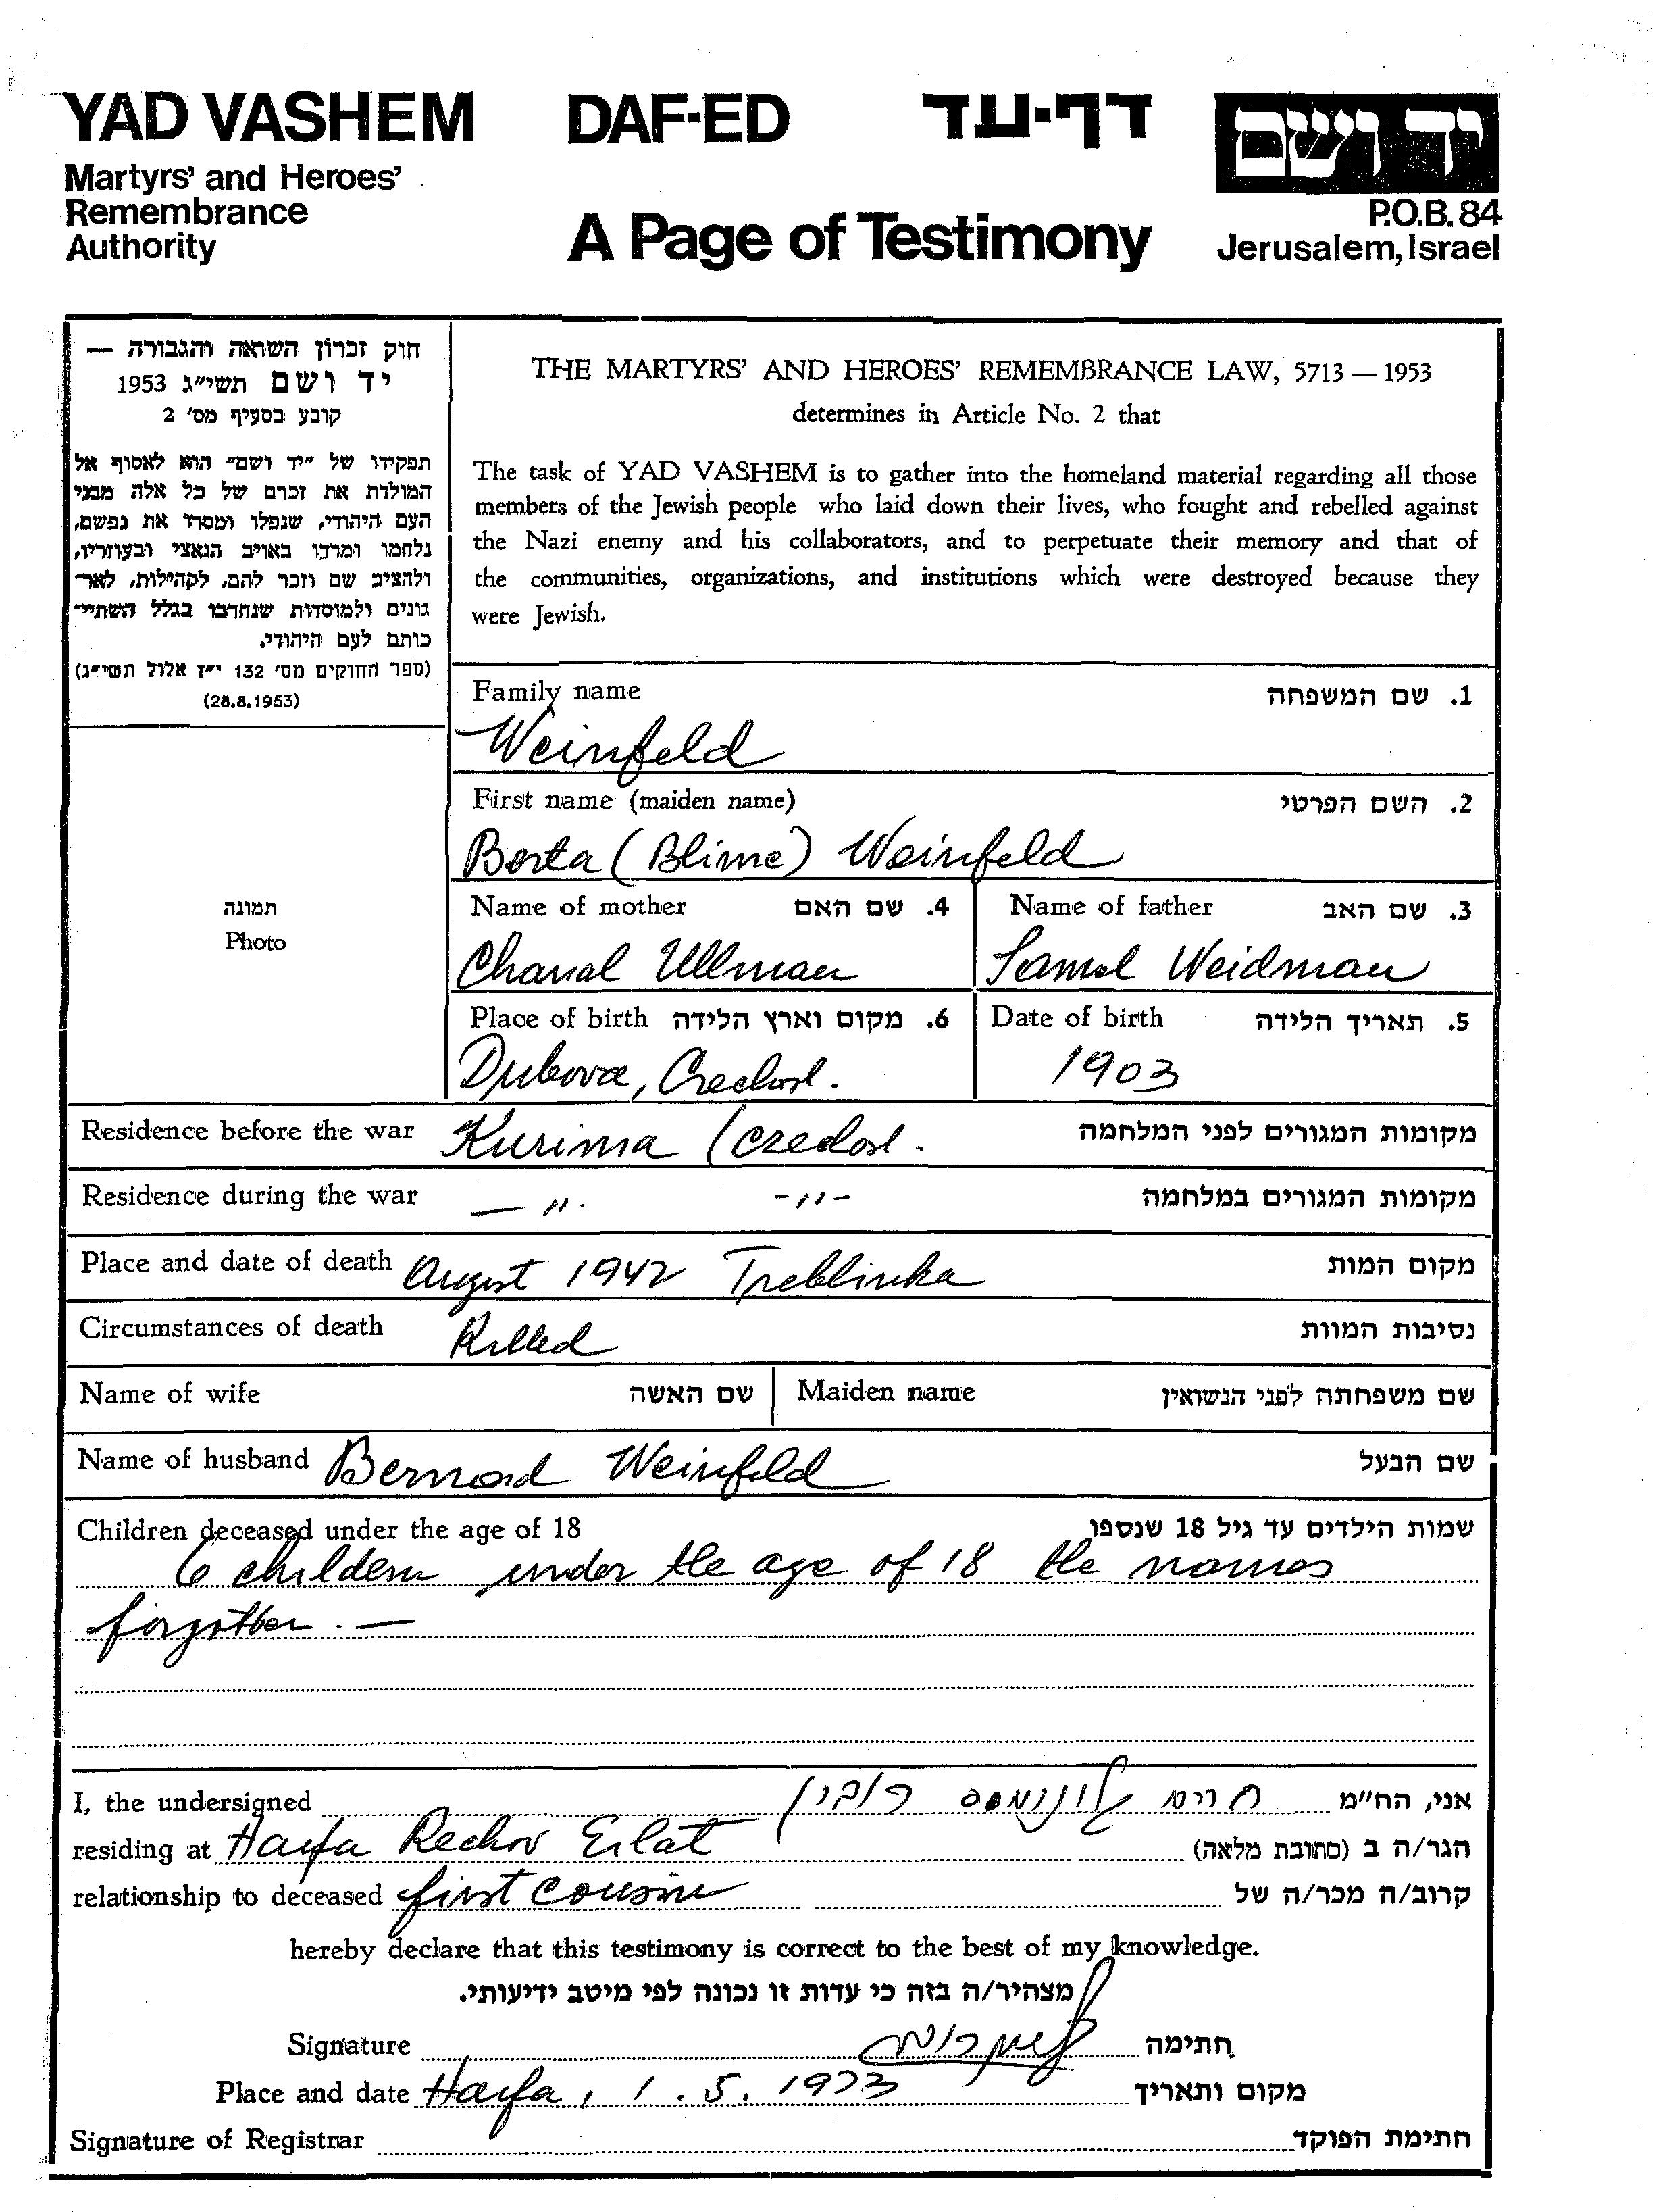 YAD VASHEM DAF-ED דף-עד יד ושם
Martyrs' and Heroes'
Remembrance
Authority
A Page of Testimony
P.O.B. 84
Jerusalem, Israel
חוק זכרון השואה והגבורה —
יד ושם תשי"ג 1953
קובע בסעיף מס' 2
תפקידו של "יד ושם" הוא לאסוף אל
המולדת את זכרם של כל אלה מבני
העם היהודי, שנפלו ומסרו את נפשם,
נלחמו ומרדו באויב הנאצי ובעוזריו,
ולהציב שם וזכר להם, לקהילות, לאר-
גונים ולמוסדות שנחרבו בגלל השתיי-
כותם לעם היהודי.
(ספר החוקים מס' 132 י"ז אלול תשי"ג)
(28.8.1953)
THE MARTYRS' AND HEROES' REMEMBRANCE LAW, 5713 — 1953
determines in Article No. 2 that
The task of YAD VASHEM is to gather into the homeland material regarding all those
members of the Jewish people who laid down their lives, who fought and rebelled against
the Nazi enemy and his collaborators, and to perpetuate their memory and that of
the communities, organizations, and institutions which were destroyed because they
were Jewish.
Family name 1. שם המשפחה
Weinfeld
First name (maiden name) 2. השם הפרטי
Berta (Blime) Weinfeld
תמונה
Photo
Name of mother 4. שם האם Name of father 3. שם האב
Ullman Weidman
Place of birth 6. מקום וארץ הלידה Date of birth 5. תאריך הלידה
Dubova, 1903
Residence before the war Kurima מקומות המגורים לפני המלחמה
Residence during the war — " . -"- מקומות המגורים במלחמה
Place and date of death August 1942 Treblinka מקום המות
Circumstances of death Killed נסיבות המוות
Name of wife שם האשה Maiden name שם משפחתה לפני הנשואין
Name of husband Bernard Weinfeld שם הבעל
Children deceased under the age of 18 שמות הילדים עד גיל 18 שנספו
6 children under the age of 18 the names
forgotten. —
I, the undersigned חיים רובין אני, הח"מ
residing at Haifa Rechov Eilat הגר/ה ב (כתובת מלאה)
relationship to deceased first cousin קרוב/ה מכר/ה של
hereby declare that this testimony is correct to the best of my knowledge.
מצהיר/ה בזה כי עדות זו נכונה לפי מיטב ידיעותי.
Signature חתימה
Place and date Haifa, 1.5.1973 מקום ותאריך
Signature of Registrar חתימת הפוקד